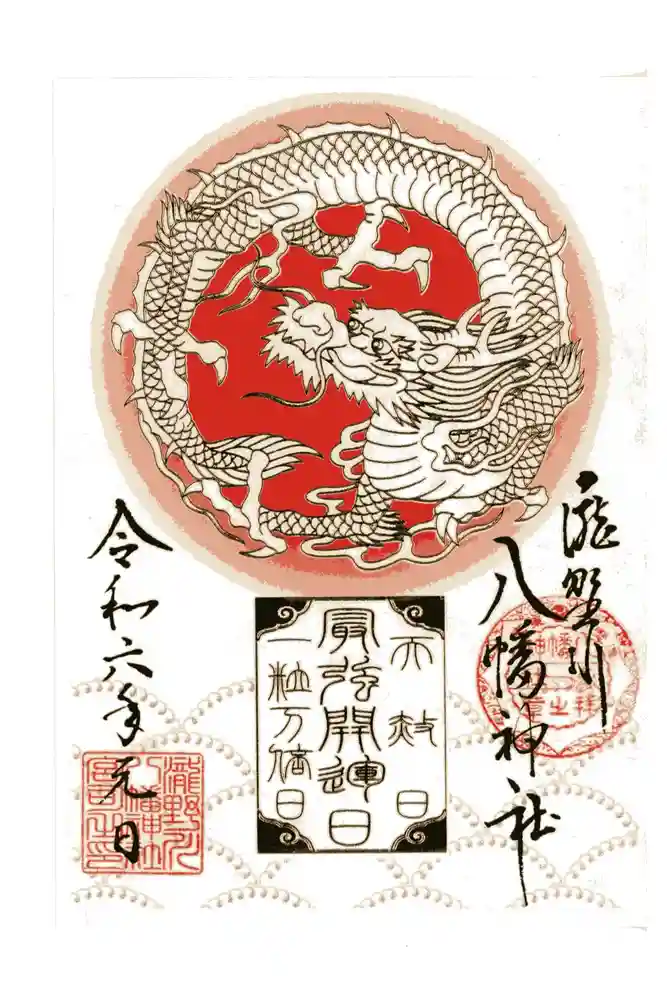 滝野川
八幡神社
天赦日
最强開運日
一粒万倍日
令和六年元日
瀧野川
八幡神社